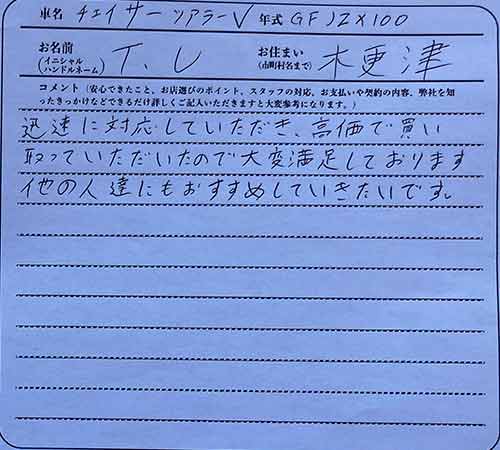 車名 チェイサーツアラーV 年式 GFJZX100
お名前 (イニシャル ハンドルネーム) T.U お住まい (市町村名まで) 木更津
コメント (安心できたこと、お店選びのポイント、スタッフの対応、お支払いや契約の内容、弊社を知
ったきっかけなどできるだけ詳しくご記入いただきますと大変参考になります。)
迅速に対応していただき、高価で買い
取っていただいたので大変満足しております
他の人達にもおすすめしていきたいです。